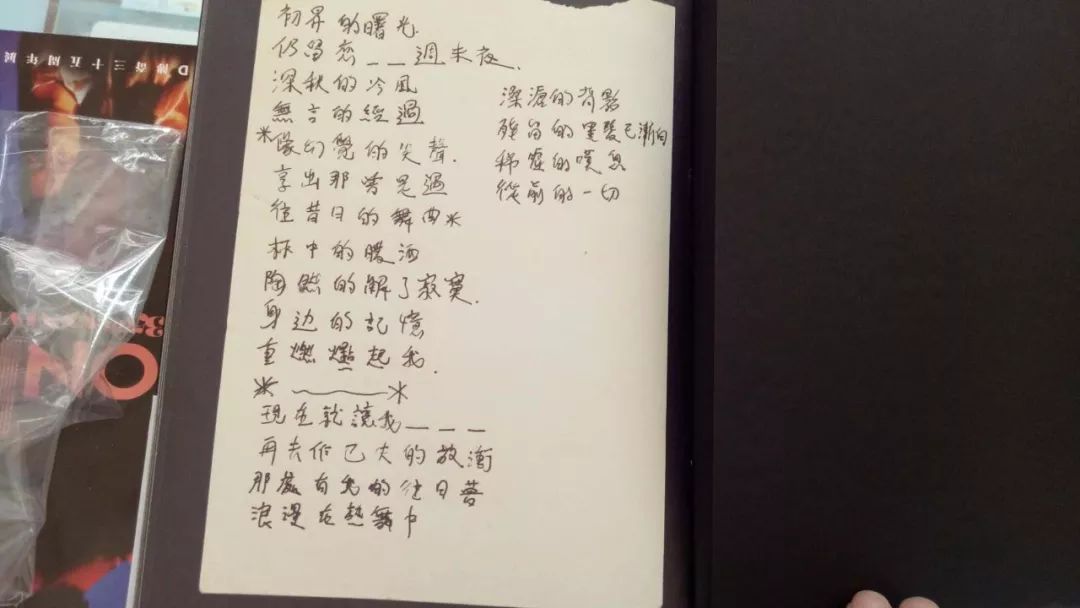 D傳奇三十五周年展
ON
初昇的曙光
仍留戀_ _週末夜.
深秋的冷風
無言的經過
*像幻覺的笑聲.
享出那曾是過
往昔日的舞曲*
杯中的酒
陶然的解了寂寞.
身边的記憶
重燃點起我.
* *
現在就讓我_ _ _
再去作已失的放衝
那處有我的往日夢
浪漫在熱舞中
的背影
殘留的黑髮已漸白
的嘆息
從前的一切